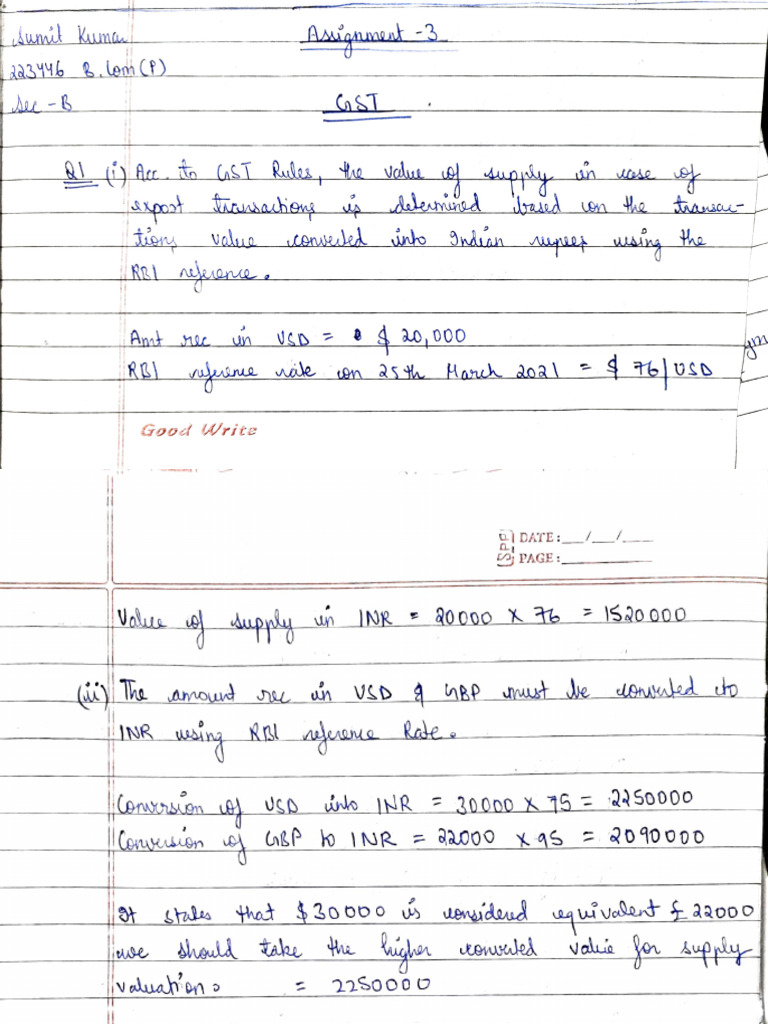 Sumit Kumar
Assignment - 3
223446 B.Com(P)
Sec - B
GST
Q1 (i) Acc. to GST Rules, the value of supply in case of
export transactions is determined based on the transac-
tions value converted into Indian rupees using the
RBI reference.
Amt rec in USD = $ 20,000
RBI reference rate on 25th March 2021 = $ 76/USD
Good Write
SPP DATE:__/__/__
PAGE:
Value of supply in INR = 20000 x 76 = 1520000
(ii) The amount rec in USD & GBP must be converted to
INR using RBI reference Rate.
Conversion of USD into INR = 30000 x 75 = 2250000
Conversion of GBP to INR = 22000 x 95 = 2090000
It states that $30000 is considered equivalent £ 22000
we should take the higher converted value for supply
valuation. = 2250000